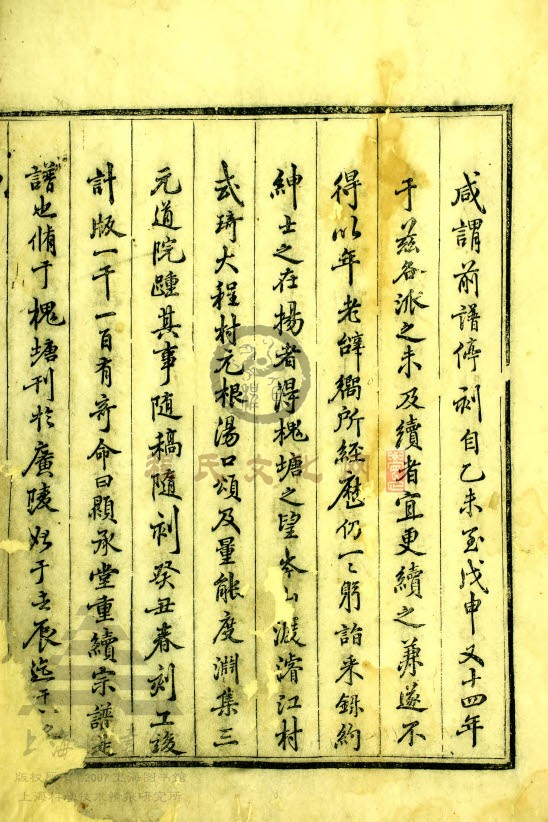 咸謂前譜停刻自乙未至戊申又十四年
于茲各派之未及續者宜更續之兼遂不
得以年老辭獨所經歷仍一一躬詣采錄約
紳士之在揚者得槐塘之望岑山渡濬江村
式琦大程村元根湯口頌及量能度淵集三
元道院踵其事隨稿隨刻癸丑春刻工竣
計版一千一百有奇命曰顯承堂重續宗譜
譜也脩于槐塘刊於廣陵始于壬辰迄于
氏文化
上海
版权所有2007上海图书馆